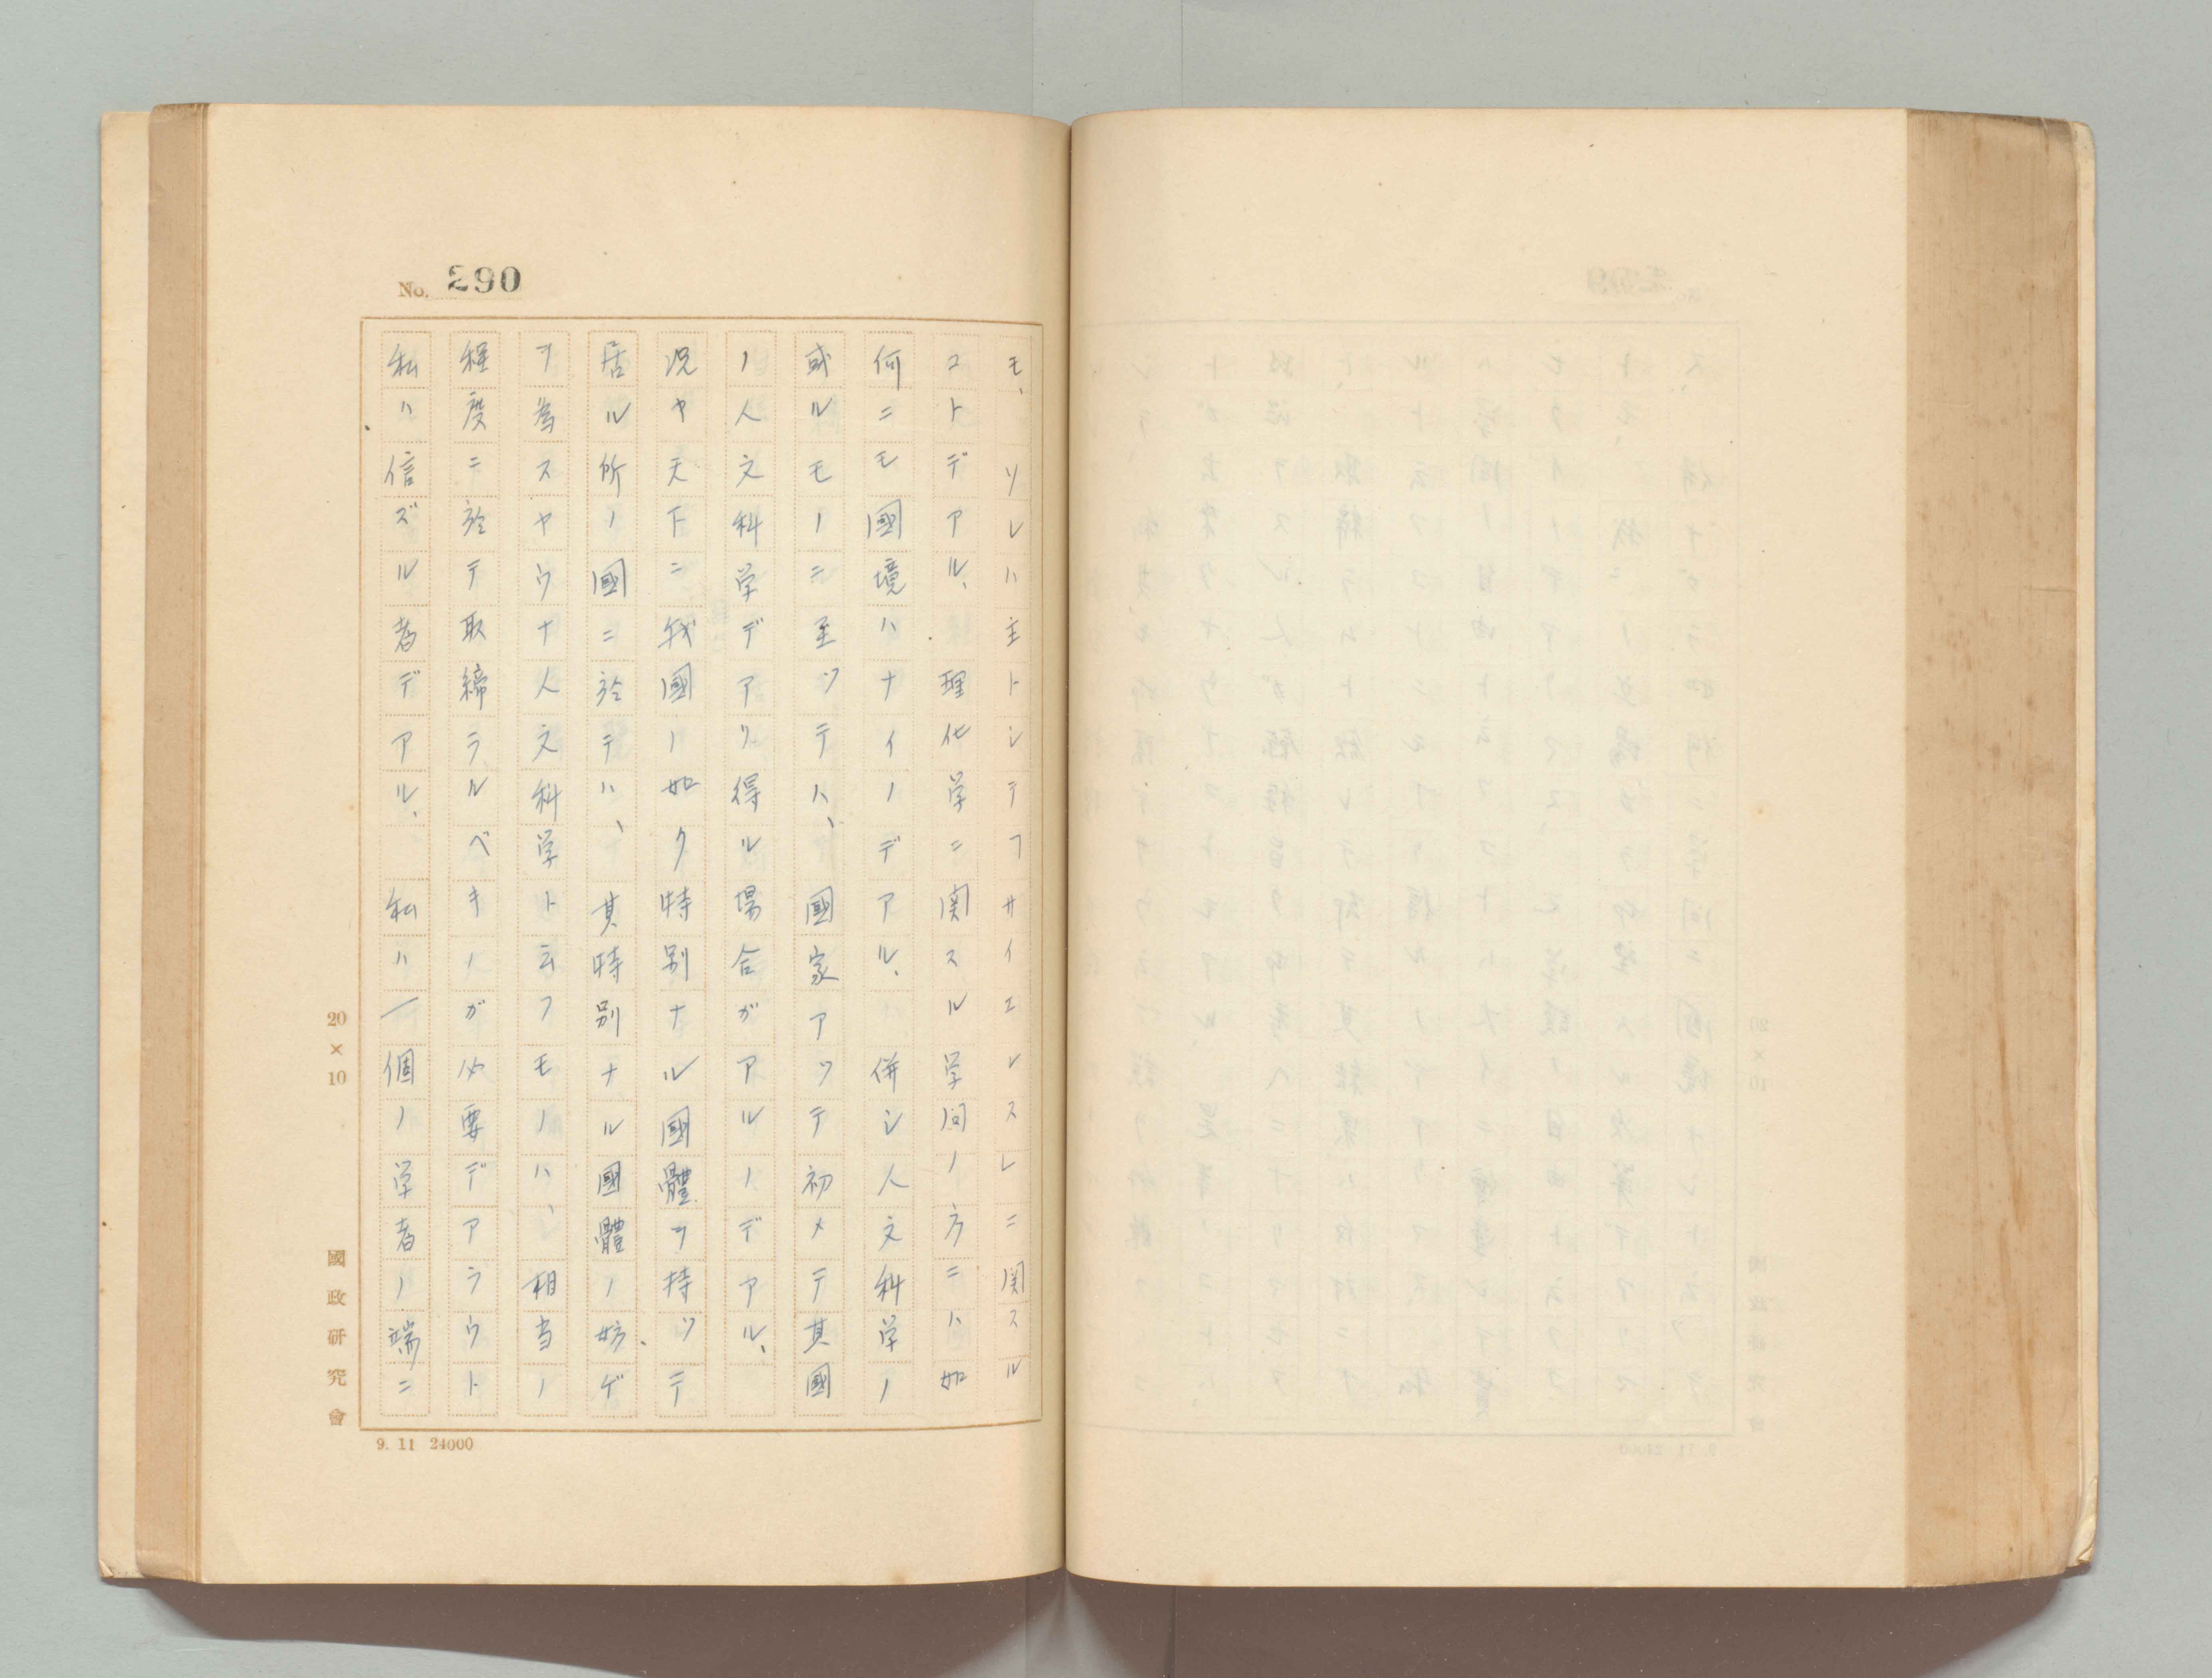 No. 290
モ、ソレハ主トシテフサイエレスレニ関スル
コトデアル、理化学ニ関スル学问ノ方ニハ如
何ニモ國境ハナイノデアル、併シ人文科学ノ
或ルモノニ至ツテハ、國家アツテ初メテ其國
ノ人文科学デアリ得ル場合ガアルノデアル、
况ヤ天下ニ我國ノ如ク特別ナル國體ヲ持ツテ
居ル所ノ國ニ於テハ、其特別ナル國體ノ妨ゲ
ヲ為スヤウナ人文科学ト云フモノハ、相当ノ
程度ニ於テ取締ラルベキノガ必要デアラウト
私ハ信ズル者デアル、私ハ一個ノ学者ノ端ニ
20×10
國政研究會
9. 11 24000